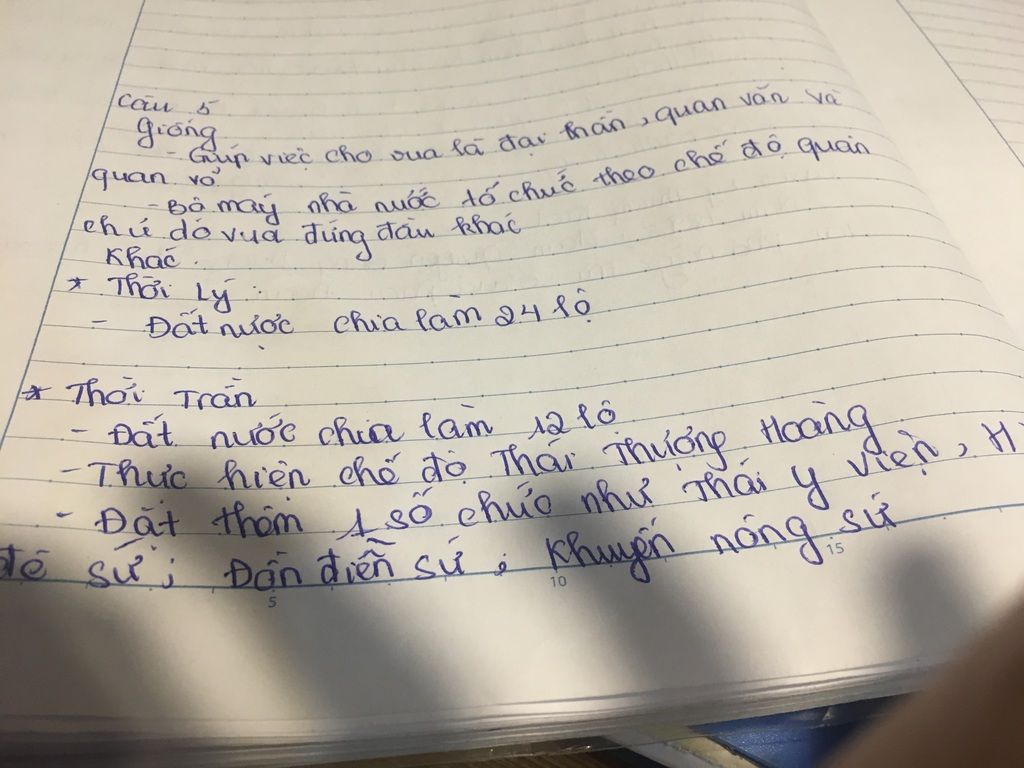 Câu 5
Giống
- Giúp việc cho vua là đại thần, quan văn và
quan võ
- Bộ máy nhà nước tổ chức theo chế độ quân
chủ do vua đứng đầu khác
Khác.
* Thời Lý:
- Đất nước chia làm 24 lộ
* Thời Trần
- Đất nước chia làm 12 lộ
- Thực hiện chế độ Thái Thượng Hoàng
- Đặt thêm 1 số chức như Thái y viện, H
đê sứ; Đồn điền sứ; Khuyến nông sứ
5
10
15